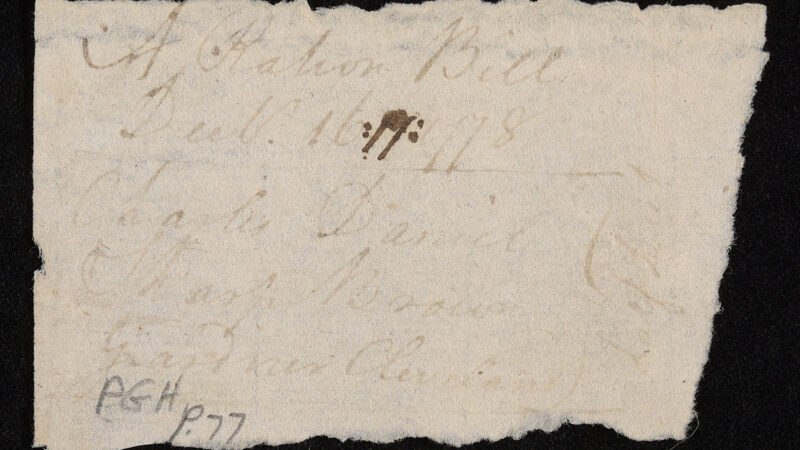 A Ration Bill
Decbr. 16 1778
Charles Daniel
Tharp Brown
Gardner Cleveland
PGH
P. 77